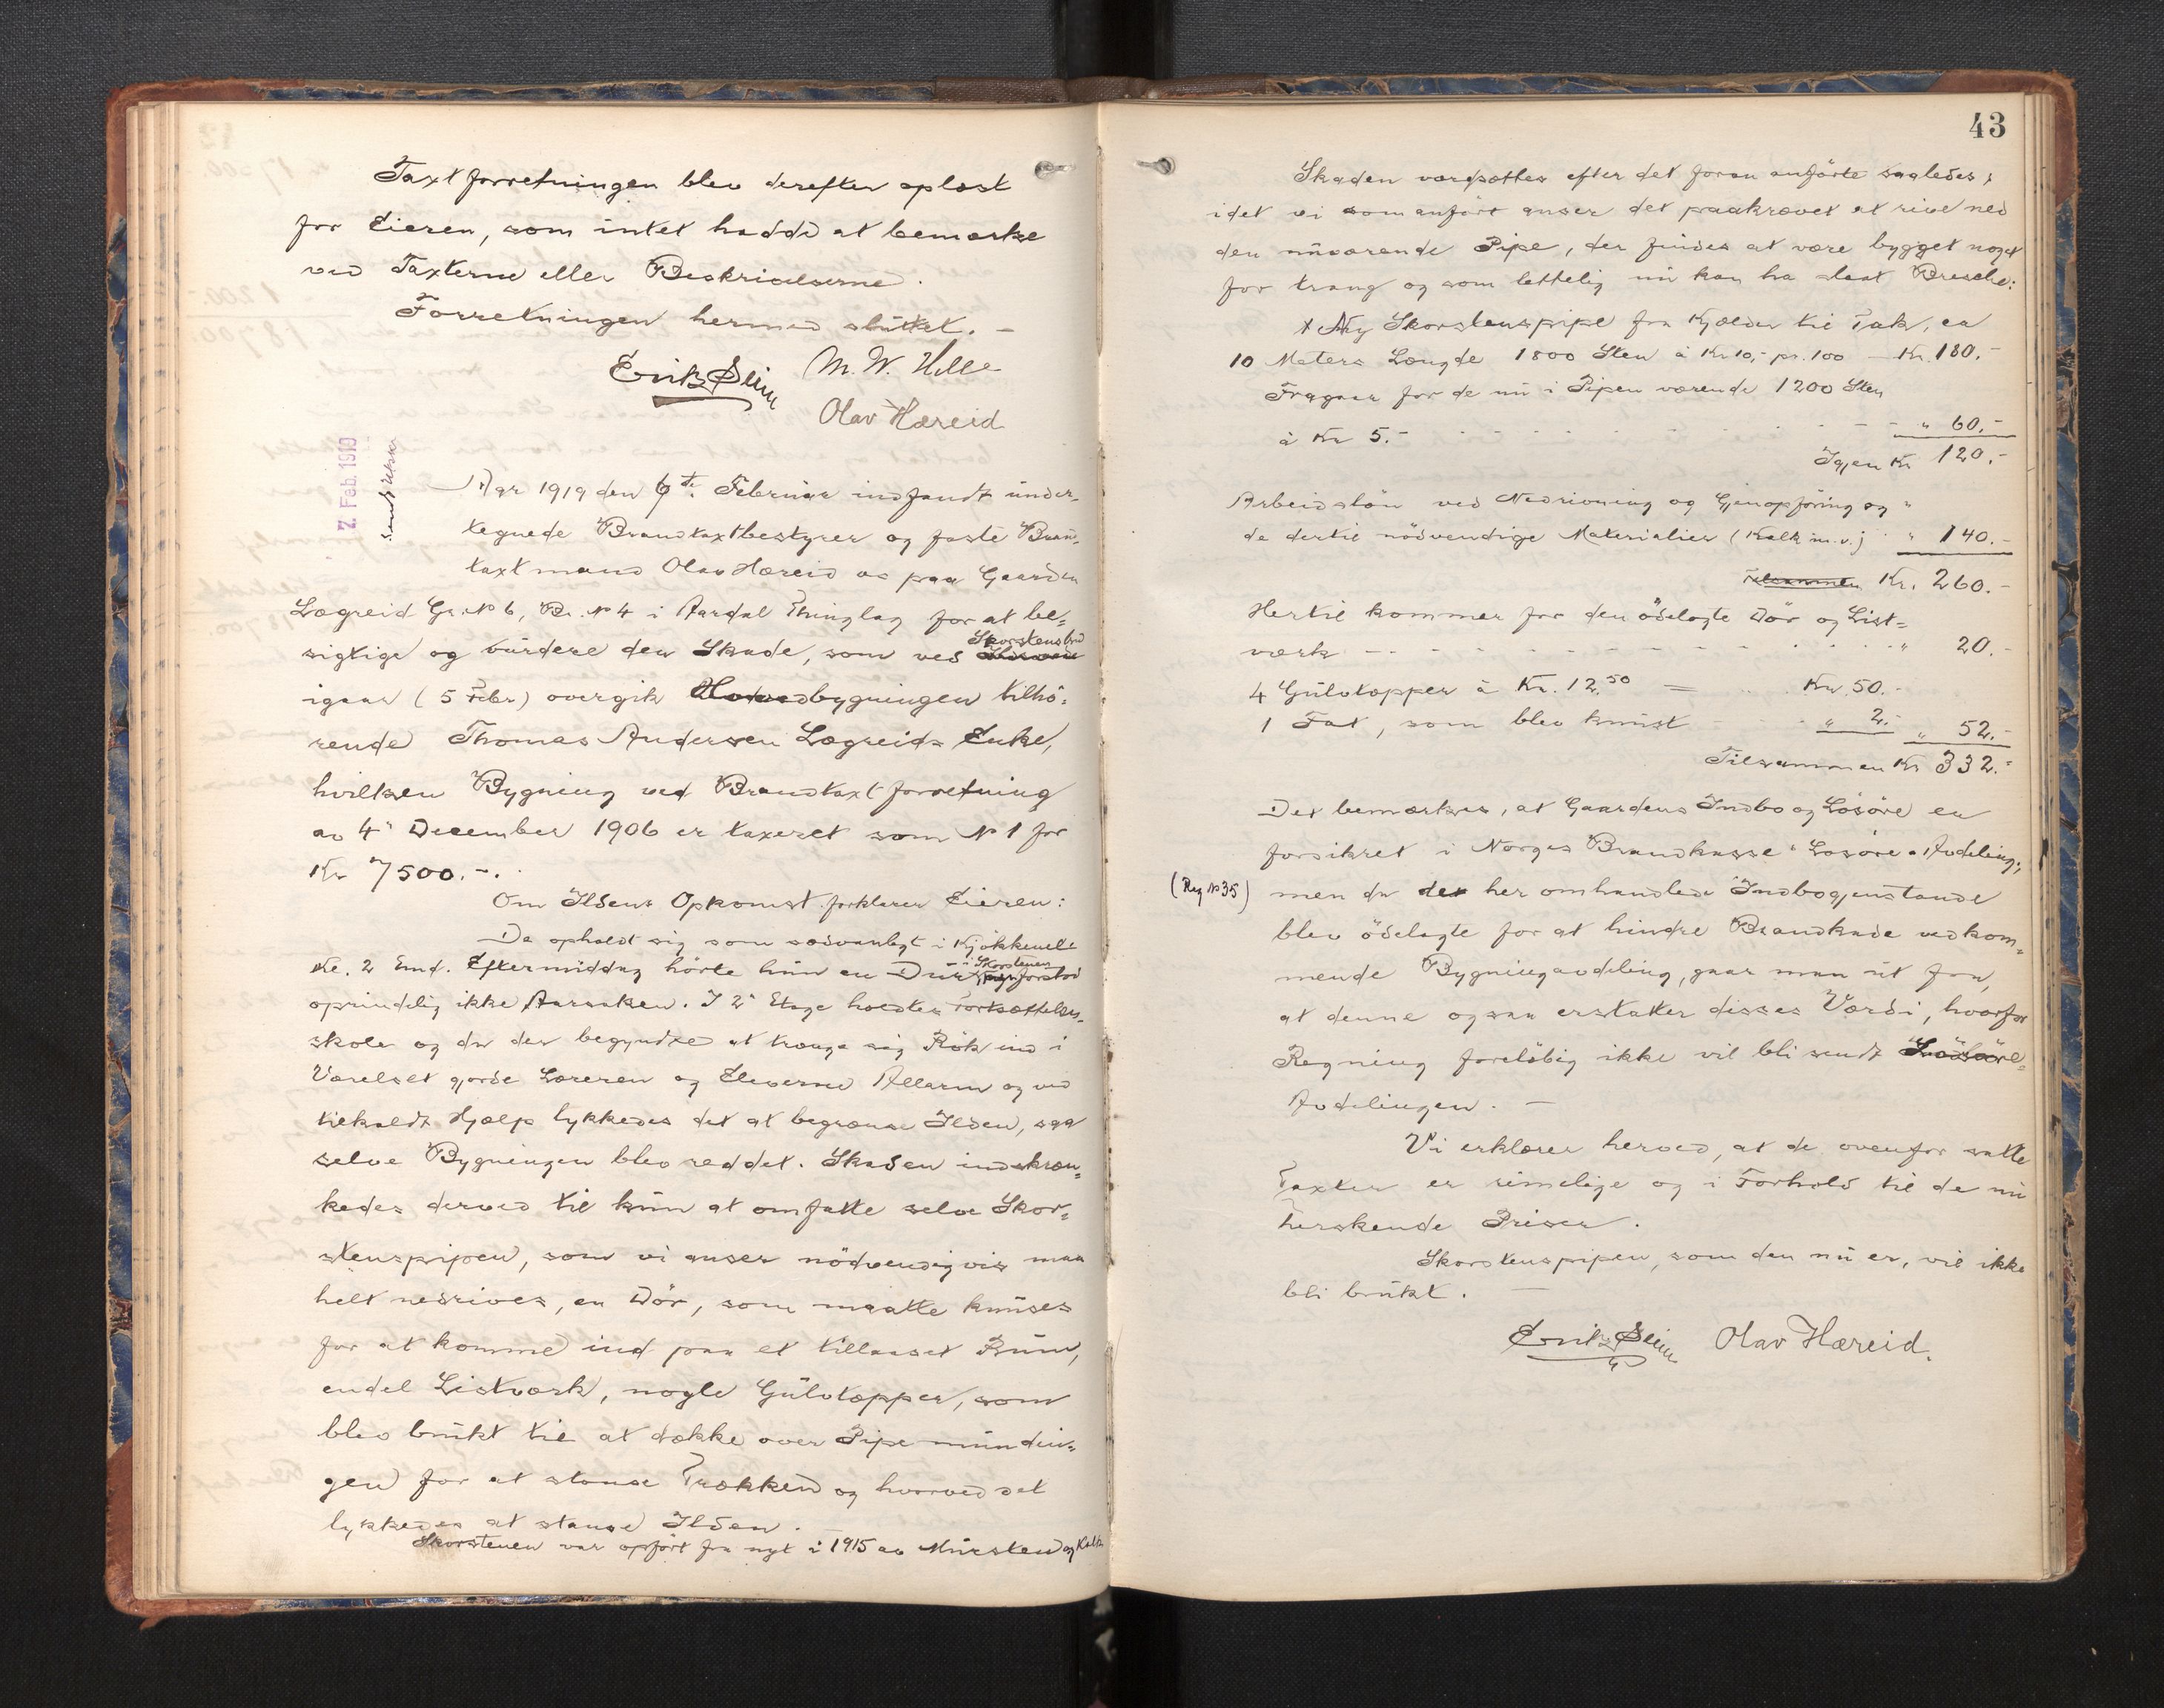 Taxtforretningen blev derefter oplæst
for Eieren, som intet hadde at bemærke
ved Taxterne eller Beskrivelserne.
Forretningen hermed sluttet. –
M. W. Helle
Olav Hæreid
7 Feb. 1919
Aar 1919 den 6te Februar indfandt under-
tegnede Brandtaxtbestyrer og faste Bran-
taxtmand Olav Hæreid os paa Gaarden
Lægreid Gr. № 6, Br. № 4 i Aardal Thinglag for at be-
sigtige og vurdere den Skade, som ved Skorstensbrand
igaar (5 Febr) overgik Hovedbygningen tilhö-
rende Thomas Andersen Lægreids Enke,
hvilken Bygning ved Brandtaxtforretning
av 4de December 1906 er taxeret som № 1 for
Kr 7500.–.
Om Ildens Opkomst forklarer Eieren:
Da opholdt sig som sædvanligt i Kjøkkenet
Kl. 2 Emd. Eftermiddag hörte hun en Dur i Skorstenen forstod
oprindelig ikke Aarsaken. I 2de Etage holdtes Fortsættelses-
skole og da der begyndte at trænge sig Rök ind i
Værelset gjorde Læreren og Eleverne Allarm og ved
tilkaldt Hjælp lykkedes det at begrænse Ilden, saa
selve Bygningen blev reddet. Skaden indskræn-
kedes derved til kun at omfatte selve Skor-
stenspipen, som vi anser nödvendigvis maa
helt nedrives, en Dör, som maatte knuses
for at komme ind paa et tillaaset Rum,
endel Listværk, nogle Gulvtæpper, som
blev brukt til at dække over Pipemundin-
gen for at stanse Trækken og hvorved det
lykkedes at stanse Ilden.
Skorstenen var opfört fra nyt i 1915 av Mursten og Kalk
43
Skaden værdsættes efter det foran anförte saaledes,
idet vi som anfört anser det paakrævet at rive ned
den nuværende Pipe, der findes at være bygget noget
for trang og som lettelig nu kan ha slaat Bresche:
1 Ny Skorstenspipe fra Kjælder til Tak, ca
10 Meters Længde 1800 Sten à Kr 10,- pr. 100 – Kr. 180.–
Fragaar for de nu i Pipen værende 1200 Sten
à Kr 5.– " 60.–
Igjen Kr 120.–
Arbeidslön ved Nedrivning og Gjenopföring og
de dertil nödvendige Materialier (Kalk m.v.) " 140.–
Tilsammen Kr. 260.–
Hertil kommer for den ödelagte Dör og List-
værk " 20.–
4 Gulvtæpper à Kr. 12.50 = Kr. 50.–
1 Fat, som blev knust " 2.– " 52.–
Tilsammen Kr 332.–
Det bemærkes, at Gaardens Indbo og Lösöre er
forsikret i Norges Brandkasse "Lösöre" Avdeling,
(Reg № 35) men da de her omhandlede Indbogjenstande
blev ödelagte for at hindre Brandskade vedkom-
mende Bygningavdeling, gaar man ut fra,
at denne ogsaa erstatter disses Værdi, hvorfor
Regning foreløbig ikke vil bli sendt Lösöre-
Avdelingen. –
Vi erklærer herved, at de ovenfor satte
Taxter er rimelige og i Forhold til de nu
herskende Priser.
Skorstenspipen, som den nu er, vil ikke
bli brukt. –
Olav Hæreid.